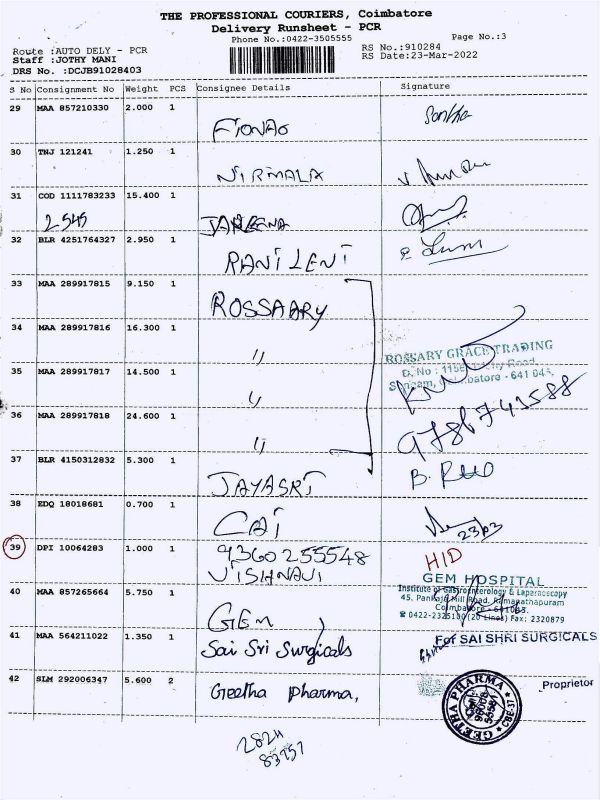 THE PROFESSIONAL COURIERS, Coimbatore
Delivery Runsheet - PCR
Phone No.:0422-3505555
Page No.:3
Route :AUTO DELY - PCR
RS No.:910284
Staff :JOTHY MANI
RS Date:23-Mar-2022
DRS No. :DCJB91028403
S No Consignment No Weight PCS Consignee Details Signature
29 MAA 857210330 2.000 1
30 TNJ 121241 1.250 1 NIRMALA
31 COD 1111783233 15.400 1
2545
32 BLR 4251764327 2.950 1 RANI LENI
33 MAA 289917815 9.150 1 ROSSAARY
34 MAA 289917816 16.300 1 〃
ROSSARY GRACE TRADING
35 MAA 289917817 14.500 1 〃
Coimbatore - 641 045.
36 MAA 289917818 24.600 1 〃
37 BLR 4150312832 5.300 1 JAYASRI
38 EDQ 18018681 0.700 1 CAI
39 DPI 10064283 1.000 1 9360255548
VISHNAVI
HID
GEM HOSPITAL
Institute of Gastroenterology & Laparoscopy
45, Pankaja Mill Road, Ramanathapuram
Coimbatore - 641045.
☎ 0422-2325100 (20 Lines) Fax: 2320879
40 MAA 857265664 5.750 1 GEM
41 MAA 564211022 1.350 1 Sai Sri Surgicals
For SAI SHRI SURGICALS
42 SLM 292006347 5.600 2 Geetha pharma,
Proprietor
GEETHA PHARMA CBE-37
2824